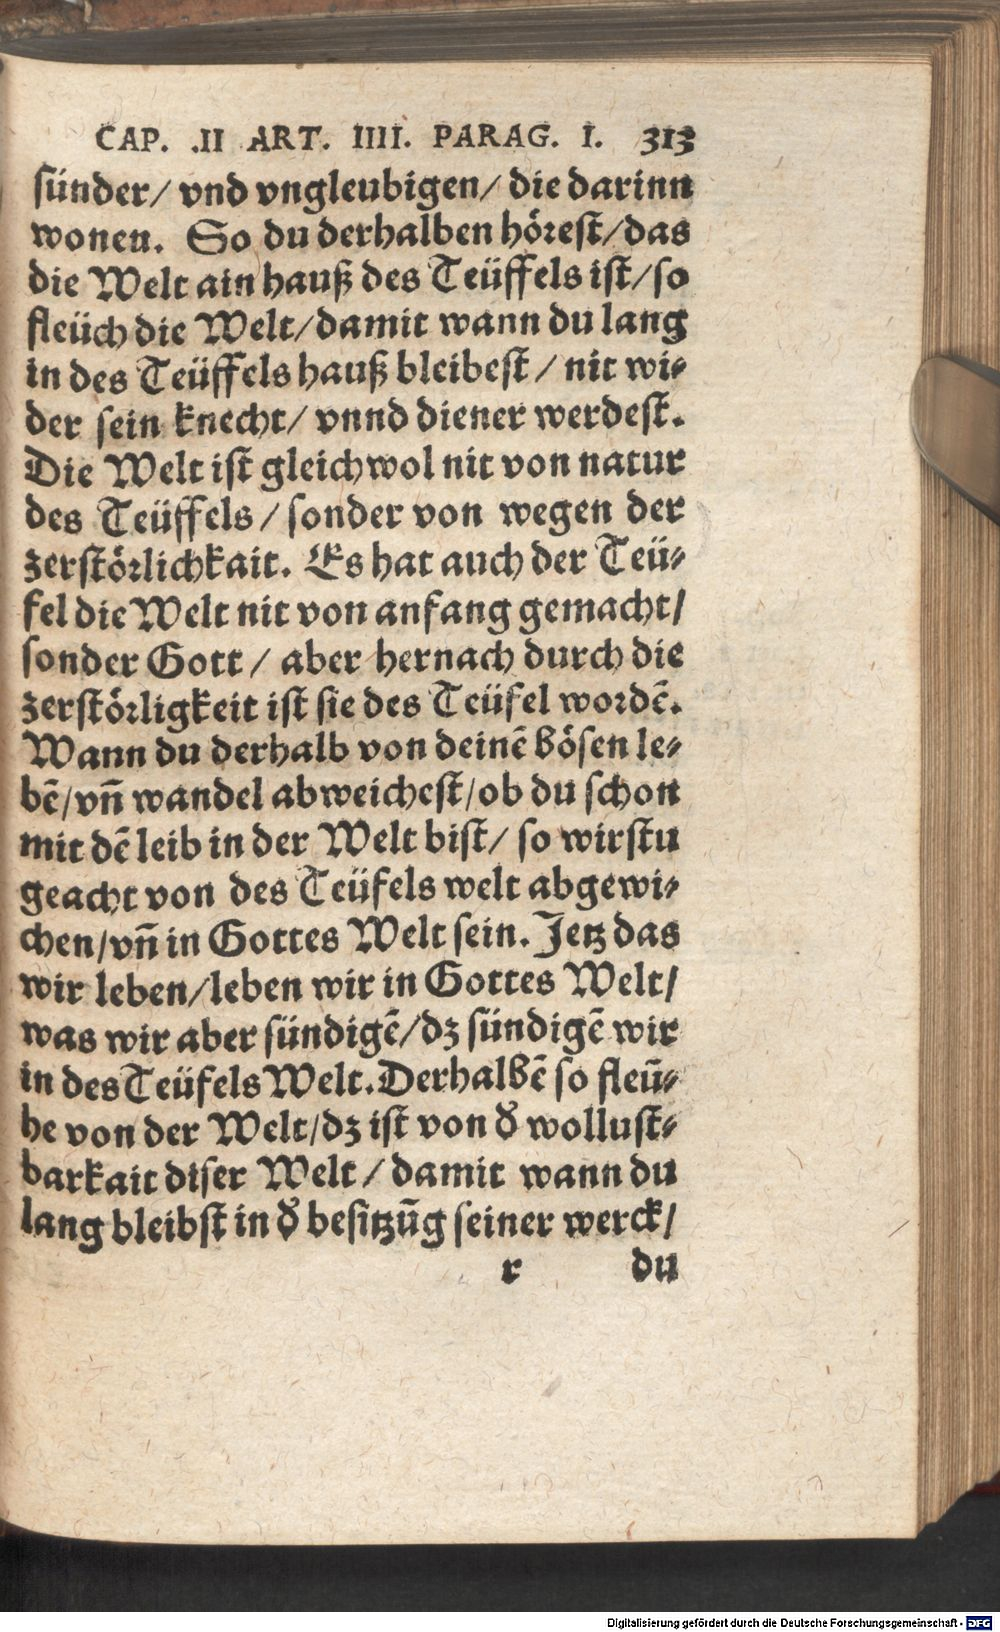 CAP. .II ART. IIII. PARAG. I. 313
sünder/ vnd vngleubigen/ die darinn
wonen. So du derhalben hörest/das
die Welt ain hauß des Teüffels ist/so
fleüch die Welt/damit wann du lang
in des Teüffels hauß bleibest / nit wi⸗
der sein knecht/ vnnd diener werdest.
Die Welt ist gleichwol nit von natur
des Teüffels / sonder von wegen der
zerstörlichkait. Es hat auch der Teü⸗
fel die Welt nit von anfang gemacht/
sonder Gott / aber hernach durch die
zerstörligkeit ist sie des Teüfel wordē.
Wann du derhalb von deinē bösen le⸗
bē/vñ wandel abweichest/ob du schon
mit dē leib in der Welt bist/ so wirstu
geacht von des Teüfels welt abgewi⸗
chen/vñ in Gottes Welt sein. Jetz das
wir leben/leben wir in Gottes Welt/
was wir aber sündigē/dz sündigē wir
in des Teüfels Welt. Derhalbē so fleū⸗
he von der Welt/dz ist von d' wollust⸗
barkait diser Welt / damit wann du
lang bleibst in d' besitzūg seiner werck/
r du
Digitalisierung gefördert durch die Deutsche Forschungsgemeinschaft - DFG